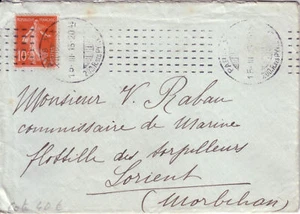 10
Monsieur V. Rabau
commissaire de Marine
flottille des torpilleurs
Lorient
(Morbihan)